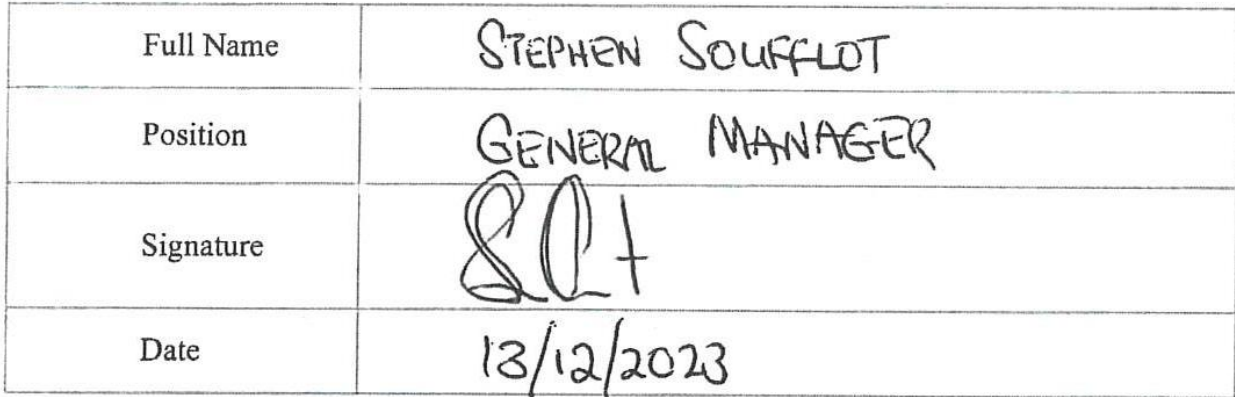 Full Name STEPHEN SOUFFLOT
Position GENERAL MANAGER
Signature
Date 13/12/2023